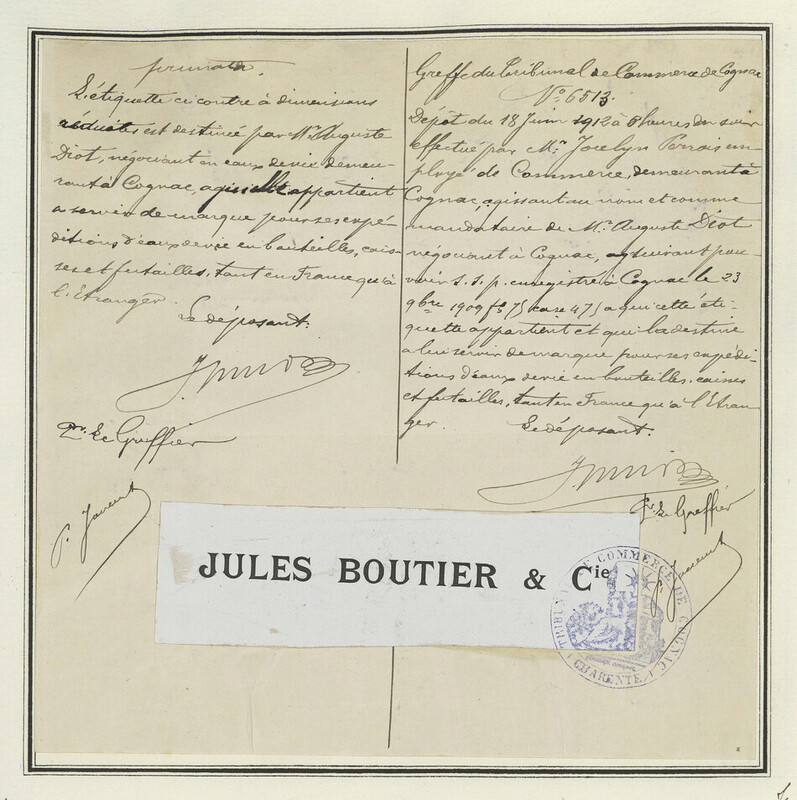 primata.
L'étiquette ci contre à dimensions
réduites est destinée par Mr. Auguste
Diot, négociant en eaux de vie demeu-
rant à Cognac, à qui elle appartient
à servir de marque pour ses expé-
ditions d'eaux de vie en bouteilles, cais-
ses et futailles, tant en France qu'à
l'Etranger.
Le déposant.
Pr. Le Greffier
Greffe du Tribunal de Commerce de Cognac
No. 6513.
Dépôt du 18 Juin 1912 à 6 heures du soir
effectué par Mr. Jocelyn Perrais em-
ployé de Commerce, demeurant à
Cognac, agissant au nom et comme
mandataire de Mr. Auguste Diot
négociant à Cognac, as suivant pou-
voir s.s.p. enregistré à Cognac le 23
9bre 1909 fo 75 case 475 a qui cette éti-
quette appartient et qui la destine
a lui servir de marque pour ses expédi-
tions d'eaux de vie en bouteilles, caisses
et futailles, tant en France qu'à l'Etran-
ger.
Le déposant.
Pr. Le Greffier
JULES BOUTIER & Cie
TRIBUNAL DE COMMERCE DE COGNAC
CHARENTE